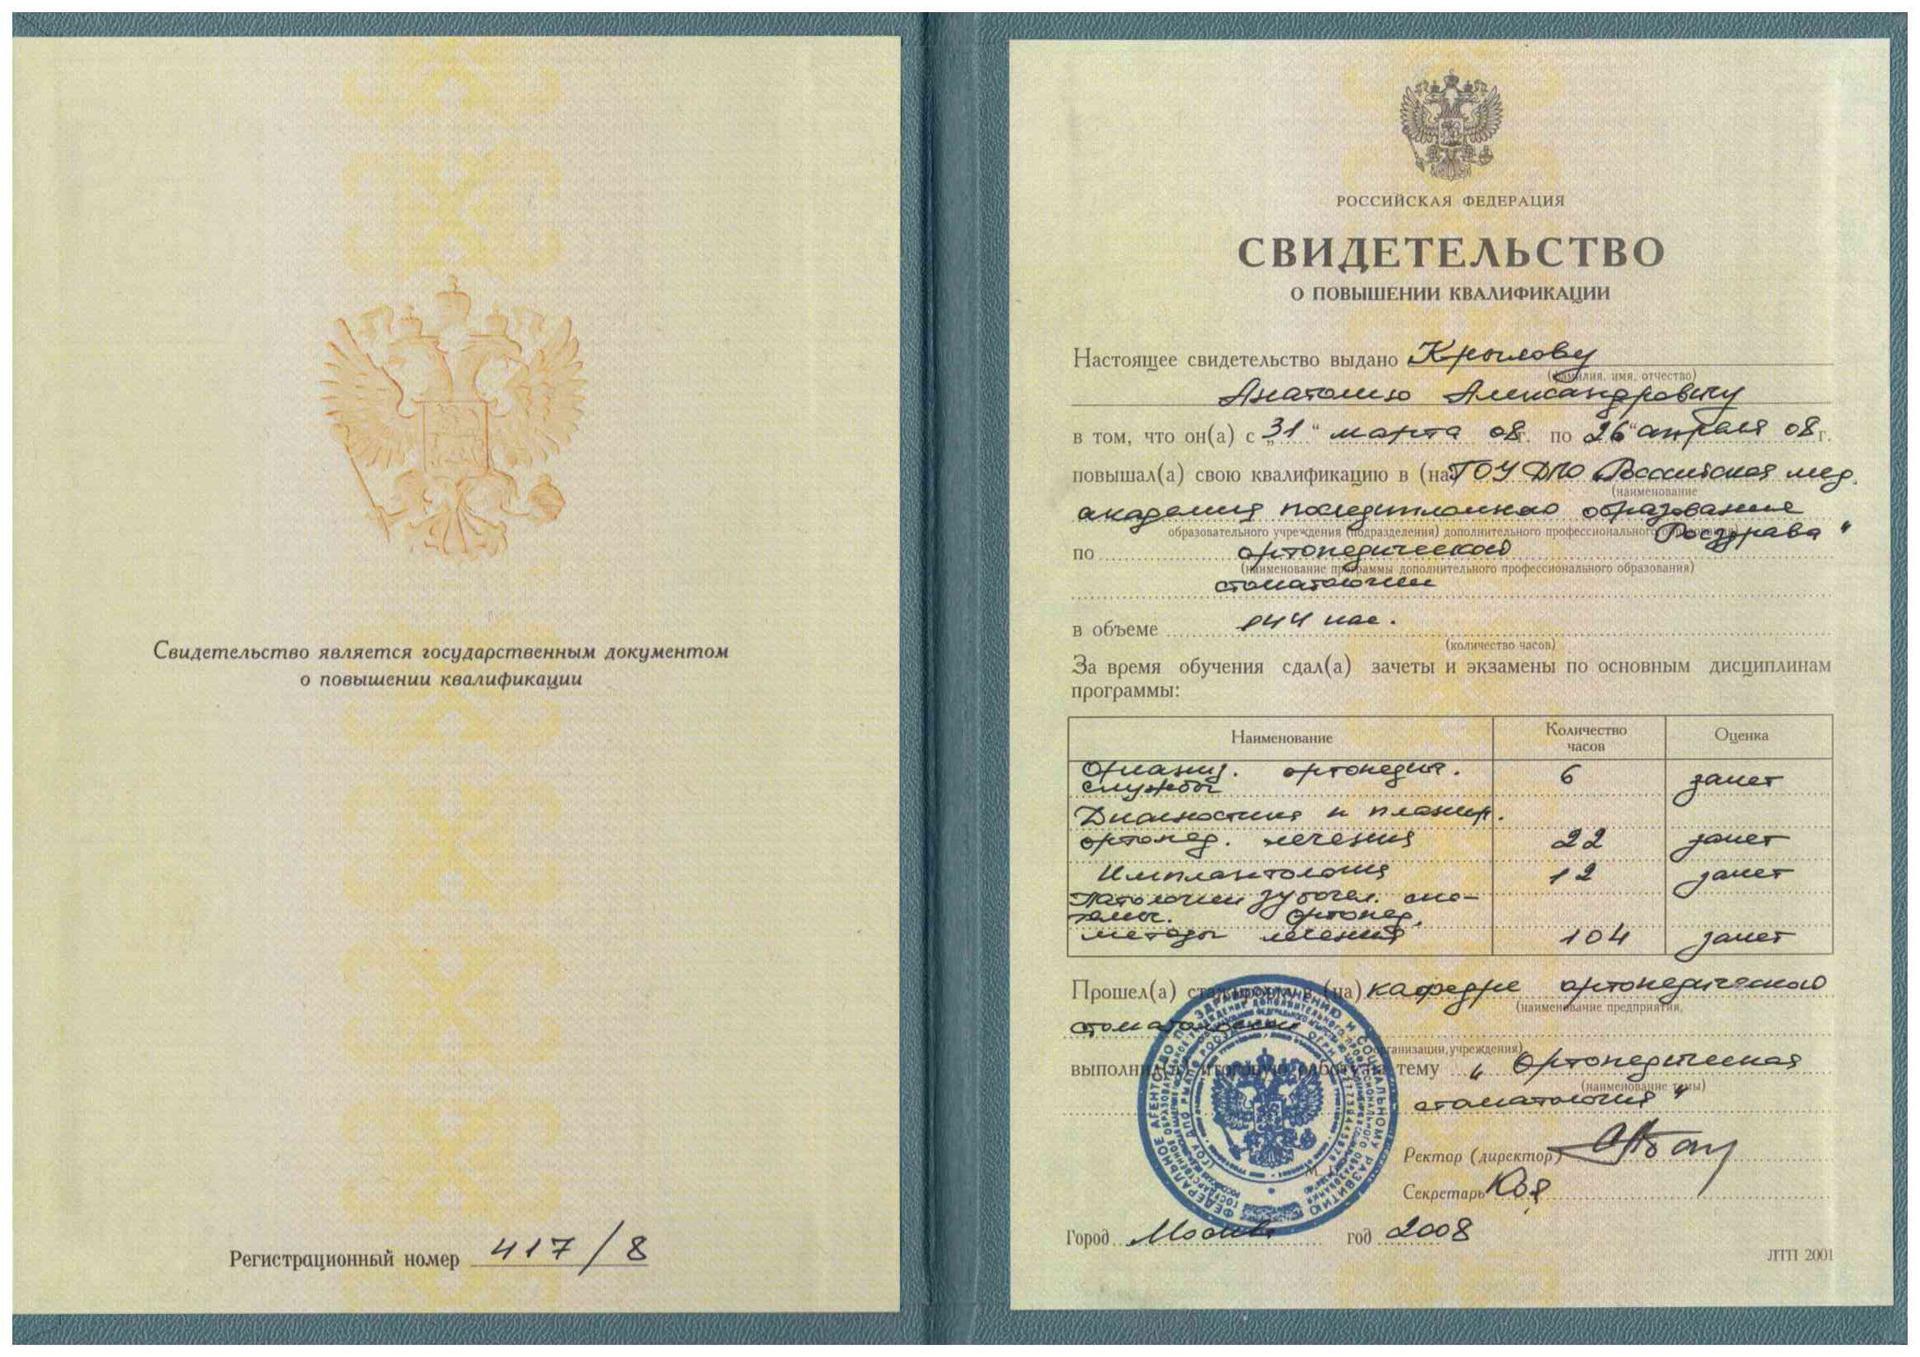 Свидетельство является государственным документом
о повышении квалификации
Регистрационный номер 417/8
РОССИЙСКАЯ ФЕДЕРАЦИЯ
СВИДЕТЕЛЬСТВО
О ПОВЫШЕНИИ КВАЛИФИКАЦИИ
Настоящее свидетельство выдано Крылову
(фамилия, имя, отчество)
Анатолию Александровичу
в том, что он(а) с „31“ марта 08г. по „26“ апреля 08г.
повышал(а) свою квалификацию в (на) ГОУ ДПО Российская мед.
(наименование
академия последипломного образования
образовательного учреждения (подразделения) дополнительного профессионального
Росздрава"
по ортопедической
(наименование программы дополнительного профессионального образования)
стоматологии
в объеме 144 час.
(количество часов)
За время обучения сдал(а) зачеты и экзамены по основным дисциплинам
программы:
Наименование Количество часов Оценка
Организ. ортопедич.
службы 6 зачет
Диагностика и планир.
ортопед. лечения 22 зачет
Имплантология 12 зачет
Патологии зубочел. сис-
темы. Ортопед.
методы лечения 104 зачет
Прошел(а) в (на) кафедре ортопедической
(наименование предприятия,
стоматологии
организации, учреждения)
выполнил(а) итоговую работу на тему „Ортопедическая
(наименование темы)
стоматология"
Ректор (директор)
Секретарь
Город Москва год 2008
ЛТП 2001
ФЕДЕРАЛЬНОЕ АГЕНТСТВО ПО ЗДРАВООХРАНЕНИЮ И СОЦИАЛЬНОМУ РАЗВИТИЮ